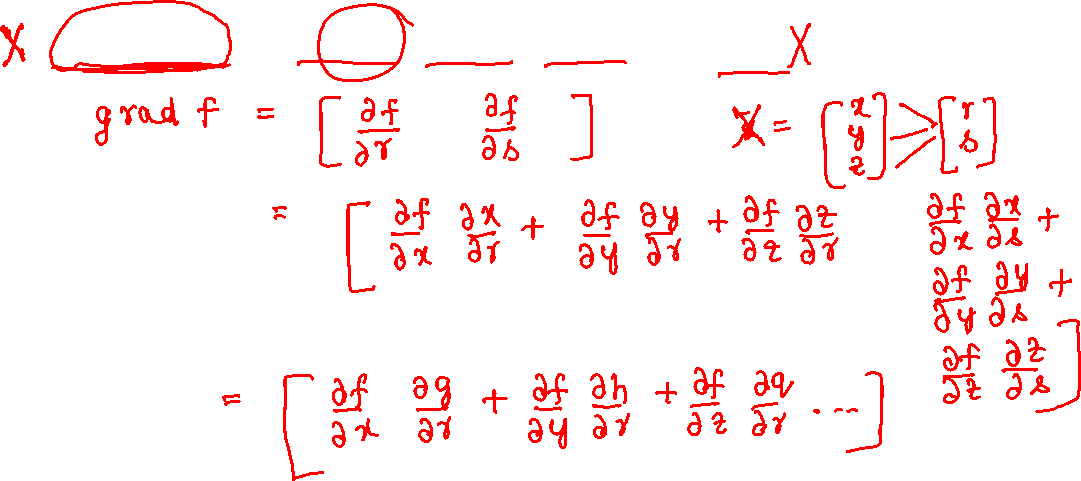 X X
grad f = [ ∂f/∂r ∂f/∂s ] X = [ x y z ] [ r s ]
= [ ∂f/∂x ∂x/∂r + ∂f/∂y ∂y/∂r + ∂f/∂z ∂z/∂r ∂f/∂x ∂x/∂s +
∂f/∂y ∂y/∂s +
∂f/∂z ∂z/∂s ]
= [ ∂f/∂x ∂g/∂r + ∂f/∂y ∂h/∂r + ∂f/∂z ∂q/∂r ... ]